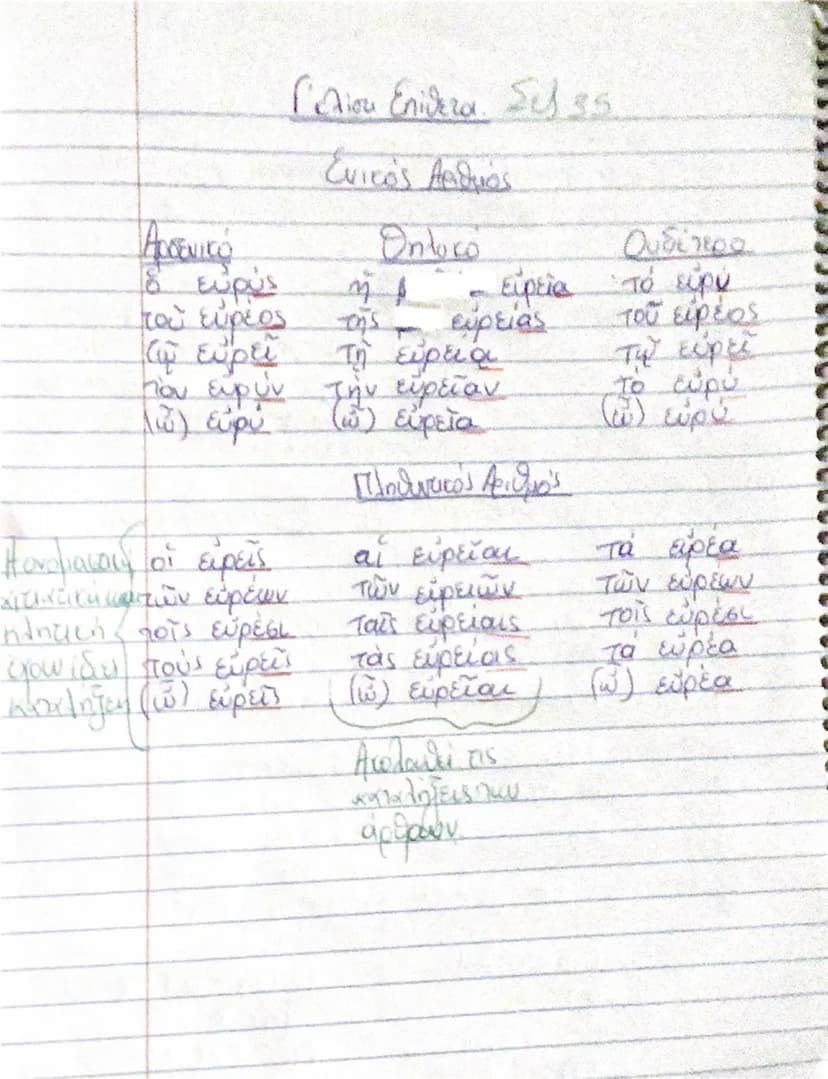 Γ' κλίση Επίθετα. Σελ 35
Ενικός Αριθμός
Αρσενικό Θηλυκό Ουδέτερο
ὁ εὐρύς ἡ εὐρεῖα τό εὐρύ
τοῦ εὐρέος τῆς εὐρείας τοῦ εὐρέος
τῷ εὐρεῖ τῇ εὐρείᾳ τῷ εὐρεῖ
τόν εὐρύν τήν εὐρεῖαν τό εὐρύ
(ὦ) εὐρύ (ὦ) εὐρεῖα (ὦ) εὐρύ
Πληθυντικός Αριθμός
οἱ εὐρεῖς αἱ εὐρεῖαι τά εὐρέα
τῶν εὐρέων τῶν εὐρειῶν τῶν εὐρέων
τοῖς εὐρέσι ταῖς εὐρείαις τοῖς εὐρέσι
τούς εὐρεῖς τάς εὐρείας τά εὐρέα
(ὦ) εὐρεῖς (ὦ) εὐρεῖαι (ὦ) εὐρέα
Η ονομαστική
αιτιατική και
κλητική
έχουν ίδια
κατάληξη
Ακολουθεί τις
καταλήξεις των
άρθρων